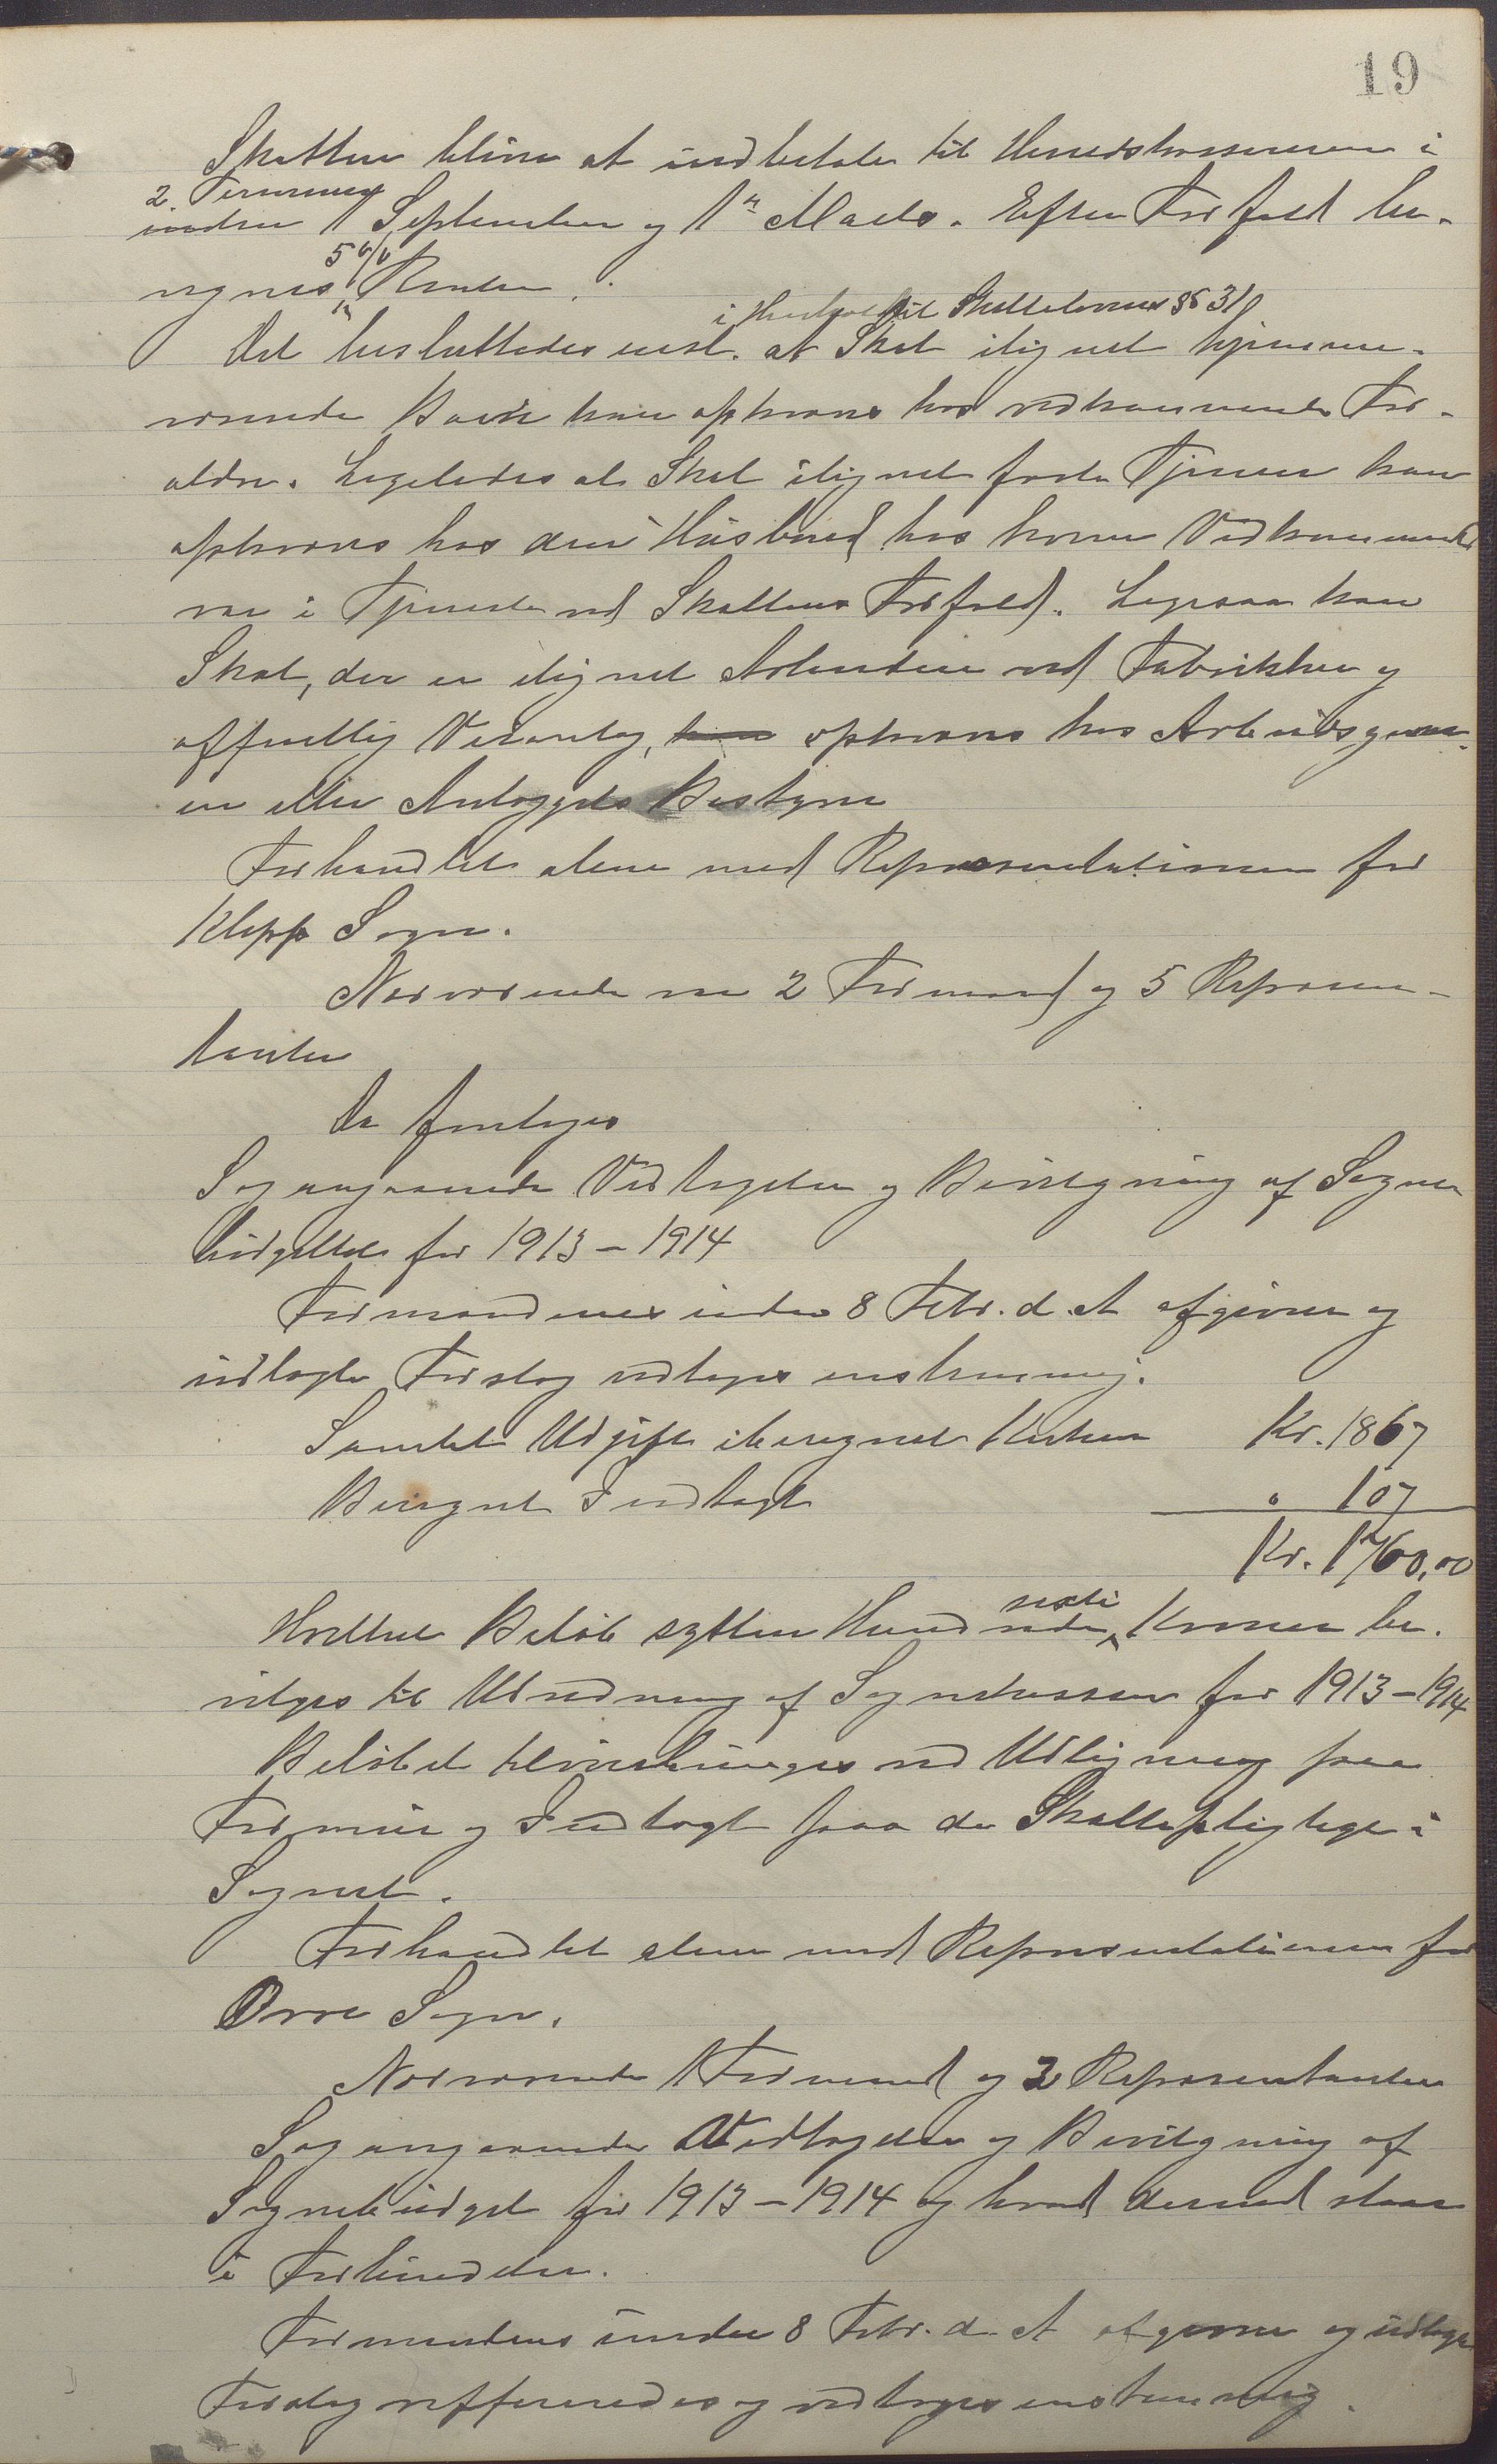 19
Skatten bliver at indbetale til Herredskassereren i
2 Terminer
inden 1 September og 1ste Marts. Efter Forfald be-
5 %
regnes Renter.
i Henhold til Skattelovens § 31
Det besluttedes enst. at Skat ilignet hjemme-
værende Børn kan opkræves hos vedkommende For-
ældre. Ligeledes at Skat ilignet faste Tjenere kan
opkræves hos den Husbond hos hvem Vedkommende
var i Tjeneste ved Skattens Forfald. Ligesaa kan
Skat, der er ilignet Arbeidere ved Fabrikker og
offentlig Veianlæg, kan opkræves hos Arbeidsgiver-
en eller Anlæggets Bestyrer
Forhandlet alene med Repræsentationen for
Klepp Sogn.
Nærværende var 2 Formænd og 5 Repræsen-
tanter
Da foretoges
Sag angaaende Vedtagelse og Bevilgning af Sogne
budgettet for 1913-1914
Formændenes under 8 Febr. d. A afgivne og
udlagte Forslag vedtages enstemmig.
Samlet Udgift iberegnet Kirken Kr. 1867
Beregnet Indtægt " 107
Kr. 1760,00
Hvilket Beløb sytten Hundrede
sexti
Kroner be-
vilges til Udredning af Sognekassen for 1913-1914
Beløbet tilveiebringes ved Udligning paa
Formue og Indtægt paa de Skattepligtige i
Sognet.
Forhandlet alene med Repræsentationen for
Orre Sogn.
Nærværende 1 Formand og 3 Repræsentanter
Sag angaaende Vedtagelse og Bevilgning af
Sognebudget for 1913-1914 og hvad dermed staar
i Forbindelse.
Formandens under 8 Febr. d. A afgivne og udlagte
Forslag refereredes og vedtoges enstemmig.